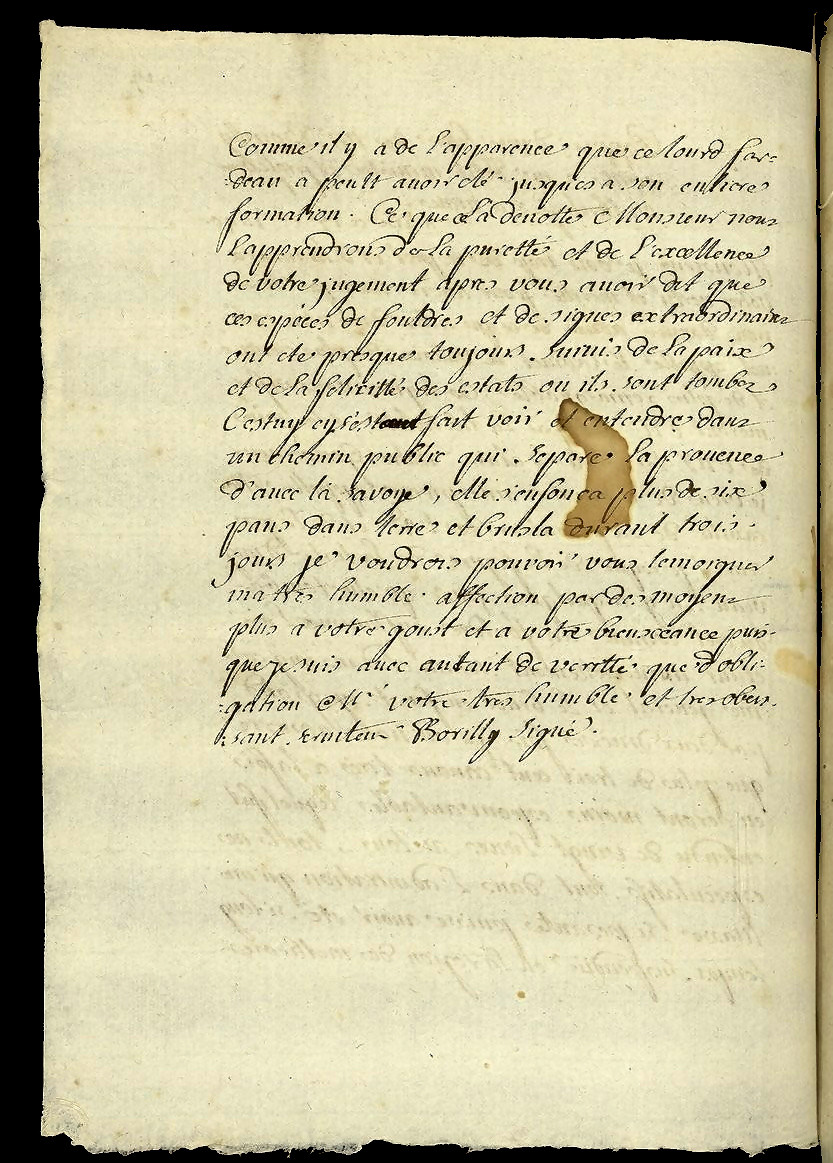 Comme il y a de l'apparence que ce lourd far-
deau a peult avoir été jusques a son entiere
formation. Ce que cela denotte Monsieur nous
l'apprendrons de la puretté et de l'excellence
de votre jugement apres vous avoir dit que
ces espéces de foultres et de signes extraordinaires
ont ete presque toujours suivis de la paix
et de la felicitté des estats ou ils sont tombez
Cestuy cy s'estant fait voir et entendre dans
un chemin public qui separe la prouence
d'avec la savoye, elle s'enfonça plus de six
pans dans terre et brusla durant trois
jours je voudrois pouvoir vous temoigner
ma tres humble affection par des moyens
plus a votre goust et a votre bienseeance puis
que je suis avec autant de veritté que d'obli-
gation Mr votre tres humble et tres obeis-
sant serviteur Borilly Signé.